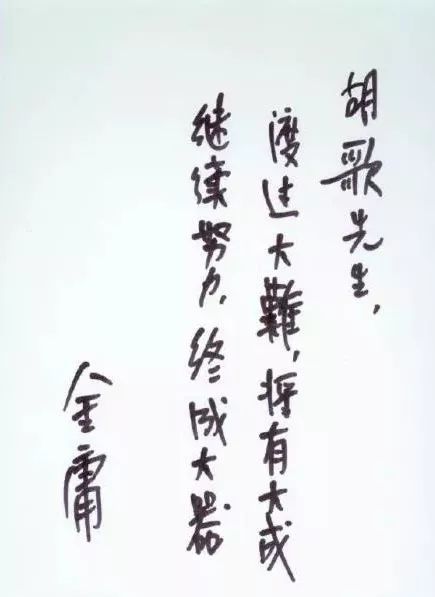 胡歌先生，
渡过大難，将有大成
继续努力，终成大器
金庸